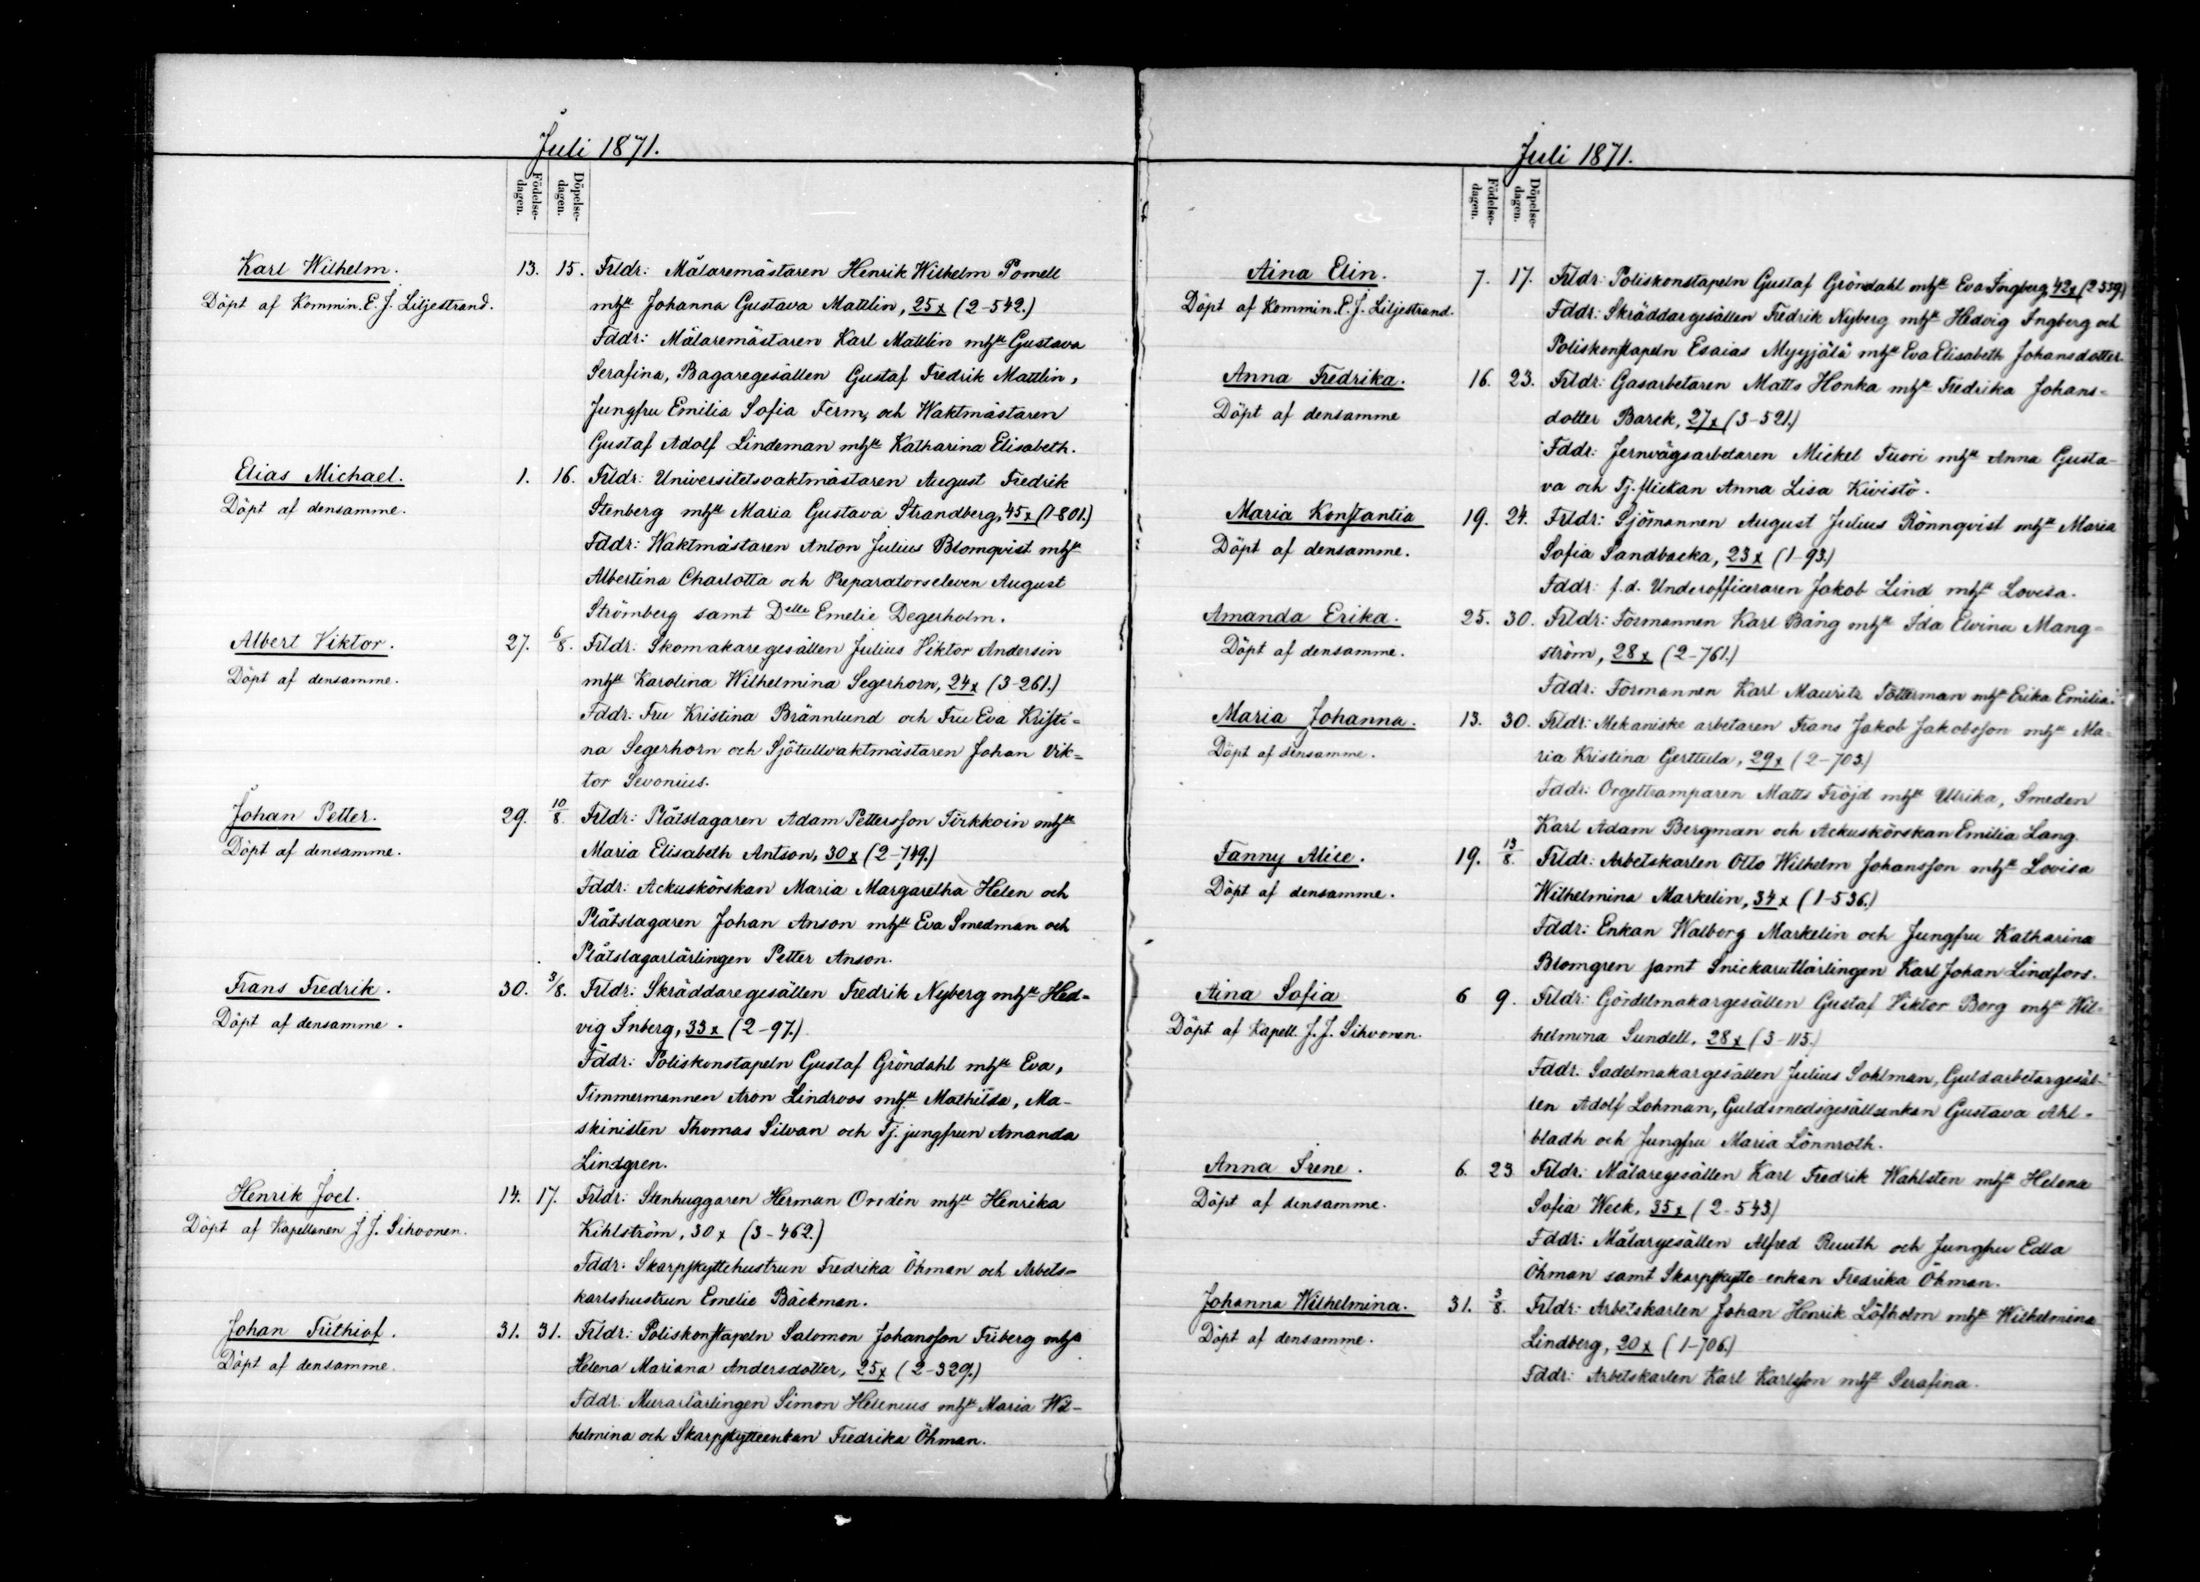 Juli 1871.
Födelse-dagen. Döpelse-dagen.
Karl Wilhelm. 13. 15. Frldr: Målaremästaren Henrik Wilhelm Pomell
Döpt af Kommin. E. J. Liljestrand. mhsu Johanna Gustava Mattlin, 25x (2-542.)
Fddr: Målaremästaren Karl Mattlin mhsu Gustava
Serafina, Bagaregesällen Gustaf Fredrik Mattlin,
Jungfru Emilia Sofia Ferm, och Waktmästaren
Gustaf Adolf Lindeman mhsu Katharina Elisabeth.
Elias Michael. 1. 16. Frldr: Universitetsvaktmästaren August Fredrik
Döpt af densamme. Stenberg mhsu Maria Gustava Strandberg, 45x (1-801.)
Fddr: Waktmästaren Anton Julius Blomqvist mhsu
Albertina Charlotta och Preparatorseleven August
Strömberg samt Delle Emelie Degerholm.
Albert Viktor. 27. 6/8. Frldr: Skomakaregesällen Julius Viktor Andersin
Döpt af densamme. mhsu Karolina Wilhelmina Segerhorn, 24x (3-261.)
Fddr: Fru Kristina Brännlund och Fru Eva Kristi-
na Segerhorn och Sjötullvaktmästaren Johan Vik-
tor Sevonius.
Johan Petter. 29. 10/8. Frldr: Plåtslagaren Adam Pettersson Tirkkoin mhsu
Döpt af densamme. Maria Elisabeth Antson, 30x (2-749.)
Fddr: Ackuskörskan Maria Margaretha Helen och
Plåtslagaren Johan Anson mhsu Eva Smedman och
Plåtslagarlärlingen Petter Anson.
Frans Fredrik. 30. 3/8. Frldr: Skräddaregesällen Fredrik Nyberg mhsu Hed-
Döpt af densamme. vig Inberg, 33x (2-97.)
Fddr: Poliskonstapeln Gustaf Gröndahl mhsu Eva,
Timmermannen Aron Lindroos mhsu Mathilda, Ma-
skinisten Thomas Silvan och Tj. jungfrun Amanda
Lindgren.
Henrik Joel. 14. 17. Frldr: Stenhuggaren Herman mhsu Henrika
Döpt af Kapellanen J. J. Sihvonen. Kihlström, 30x (3-462.)
Fddr: Skarpskyttehustrun Fredrika Öhman och Arbets-
karlshustrun Emelie Bäckman.
Johan Frithiof. 31. 31. Frldr: Poliskonstapeln Salomon Johansson Friberg mhsu
Döpt af densamme. Helena Mariana Andersdotter, 25x (2-329.)
Fddr: Murarlärlingen Simon Helenius mhsu Maria Wil-
helmina och Skarpskytteenkan Fredrika Öhman.
Juli 1871.
Födelse-dagen. Döpelse-dagen.
Aina Elin. 7. 17. Frldr: Poliskonstapeln Gustaf Gröndahl mhsu Eva Ingberg, 42x (2-339.)
Döpt af Kommin. E. J. Liljestrand. Fddr: Skräddargesällen Fredrik Nyberg mhsu Hedvig Ingberg och
Poliskonstapeln Esaias Myyrjälä mhsu Eva Elisabeth Johansdotter.
Anna Fredrika. 16. 23. Frldr: Gasarbetaren Matts Honka mhsu Fredrika Johans-
Döpt af densamme dotter Barck, 27x (3-521.)
Fddr: Jernvägsarbetaren Mickel Tuori mhsu Anna Gusta-
va och Tj. flickan Anna Lisa Kivistö.
Maria Konstantia 19. 24. Frldr: Sjömannen August Julius Rönnqvist mhsu Maria
Döpt af densamme. Sofia Sandbacka, 23x (1-93.)
Fddr: f.d. Underofficeraren Jakob Lind mhsu Lovisa.
Amanda Erika. 25. 30. Frldr: Formannen Karl Bång mhsu Ida Elvina Mang-
Döpt af densamme. ström, 28x (2-761.)
Fddr: Formannen Karl Mauritz Tötterman mhsu Erika Emilia.
Maria Johanna. 13. 30. Frldr: Mekaniske arbetaren Frans Jakob Jakobsson mhsu Ma-
Döpt af densamme. ria Kristina Gerttula, 29x (2-703.)
Fddr: Orgeltramparen Matts Fröjd mhsu Ulrika, Smeden
Karl Adam Bergman och Ackuskörskan Emilia Lang.
Fanny Alice. 19. 13/8. Frldr: Arbetskarlen Otto Wilhelm Johansson mhsu Lovisa
Döpt af densamme. Wilhelmina Markelin, 34x (1-536.)
Fddr: Enkan Walborg Markelin och Jungfru Katharina
Blomgren samt Snickarlärlingen Karl Johan Lindfors.
Aina Sofia 6 9. Frldr: Gördelmakargesällen Gustaf Viktor Borg mhsu Wil-
Döpt af Kapell. J. J. Sihvonen. helmina Sundell, 28x (3-115.)
Fddr: Sadelmakargesällen Julius Sohlman, Guldarbetargesäl-
len Adolf Lohman, Guldsmedsgesällsenkan Gustava Ahl-
bladh och Jungfru Maria Lönnroth.
Anna Irene. 6. 23 Frldr: Målaregesällen Karl Fredrik Wahlsten mhsu Helena
Döpt af densamme. Sofia Weck, 35x (2-543)
Fddr: Målargesällen Alfred Ruuth och Jungfru Edla
Öhman samt Skarpskytte-enkan Fredrika Öhman.
Johanna Wilhelmina. 31. 3/8. Frldr: Arbetskarlen Johan Henrik Löfholm mhsu Wilhelmina
Döpt af densamme. Lindberg, 20x (1-706.)
Fddr: Arbetskarlen Karl Karlsson mhsu Serafina.